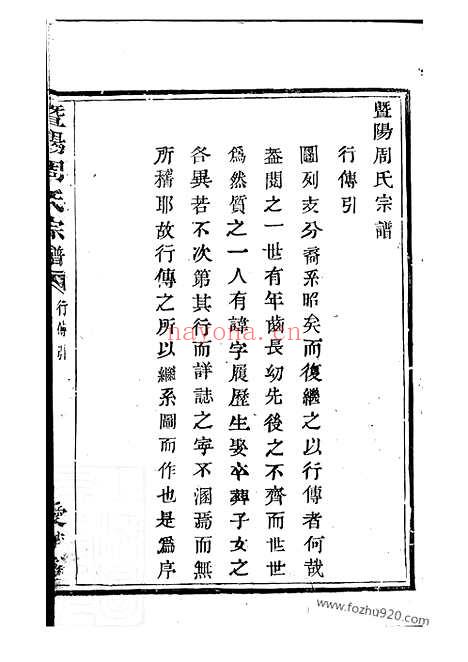 暨陽周氏宗譜
行傳引
圖列支分裔系昭矣而復繼之以行傳者何哉
蓋閱之一世有年齒長幼先後之不齊而世世
爲然質之一人有諱字履歷生娶卒葬子女之
各異若不次第其行而詳誌之寧不溷焉而無
所稽耶故行傳之所以繼系圖而作也是爲序
暨陽周氏宗譜
行傳引
nayona.cn
www.fozhu920.com